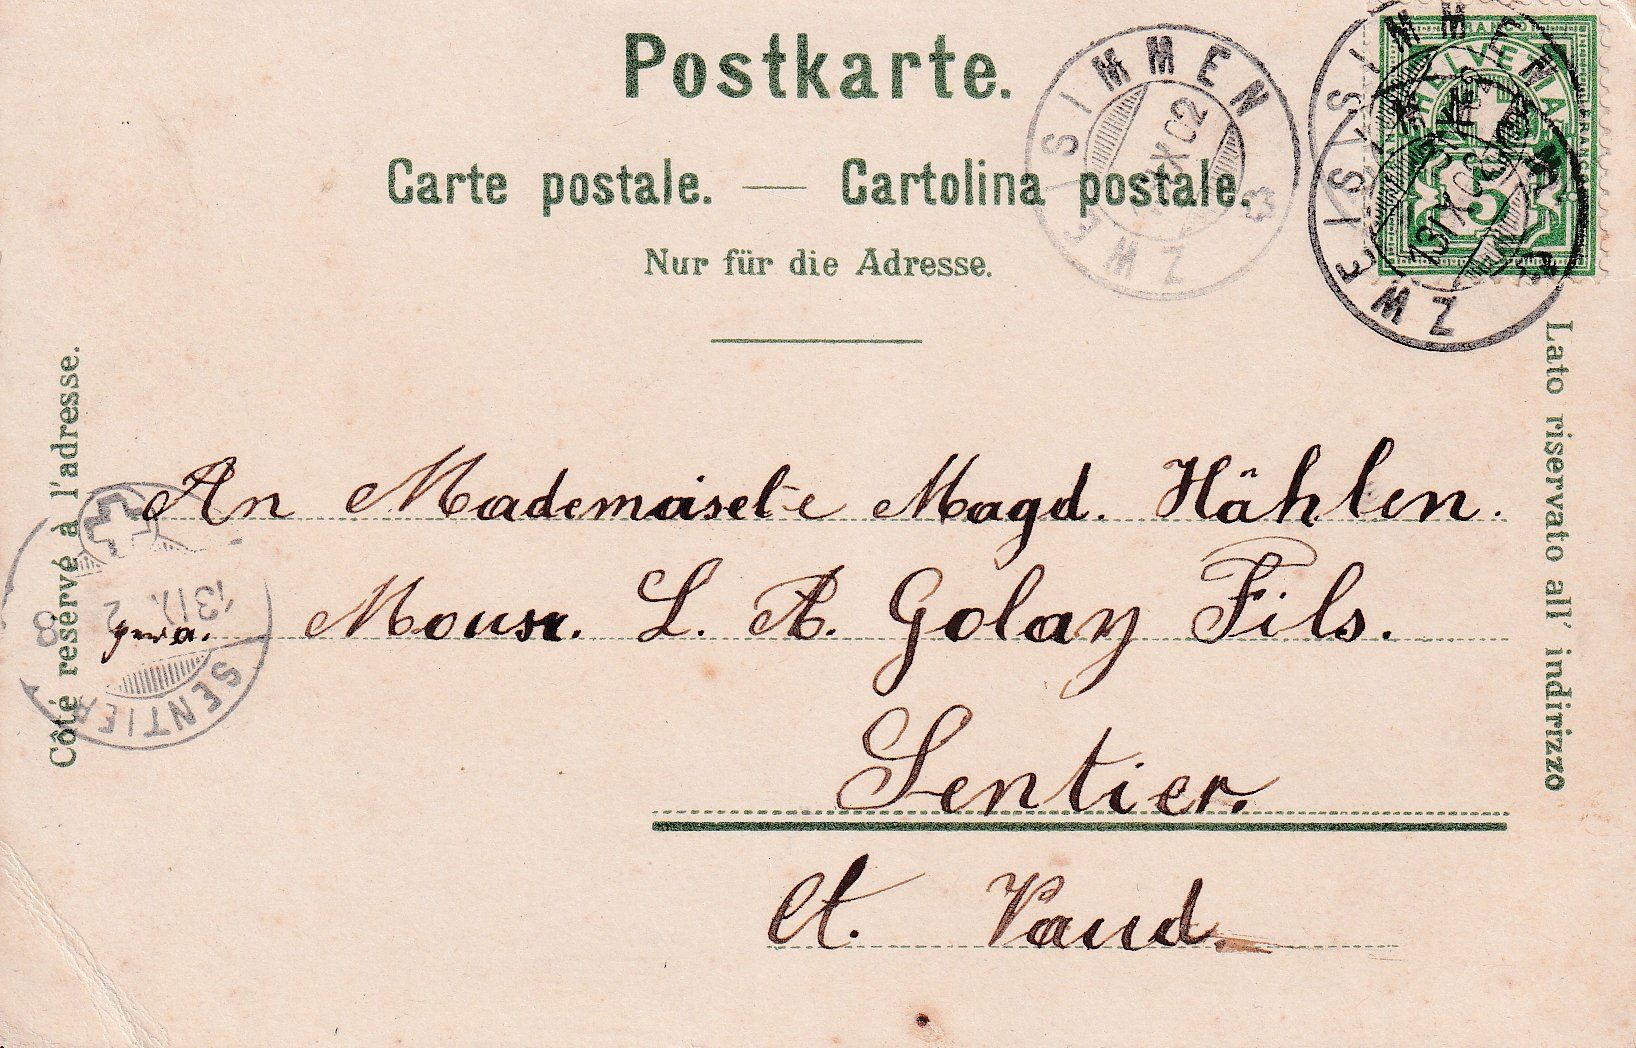 Postkarte.
Carte postale. — Cartolina postale.
Nur für die Adresse.
ZWEISIMMEN
IX 02
ZWEISIMMEN
13 IX 02
FRANCO
HELVETIA
5
Côté reservé à l'adresse.
Lato riservato all' indirizzo
An Mademoiselle Magd. Hählen.
Monsr. L. A. Golay Fils.
Sentier.
Ct. Vaud.
SENTIER
13 IX 2
8